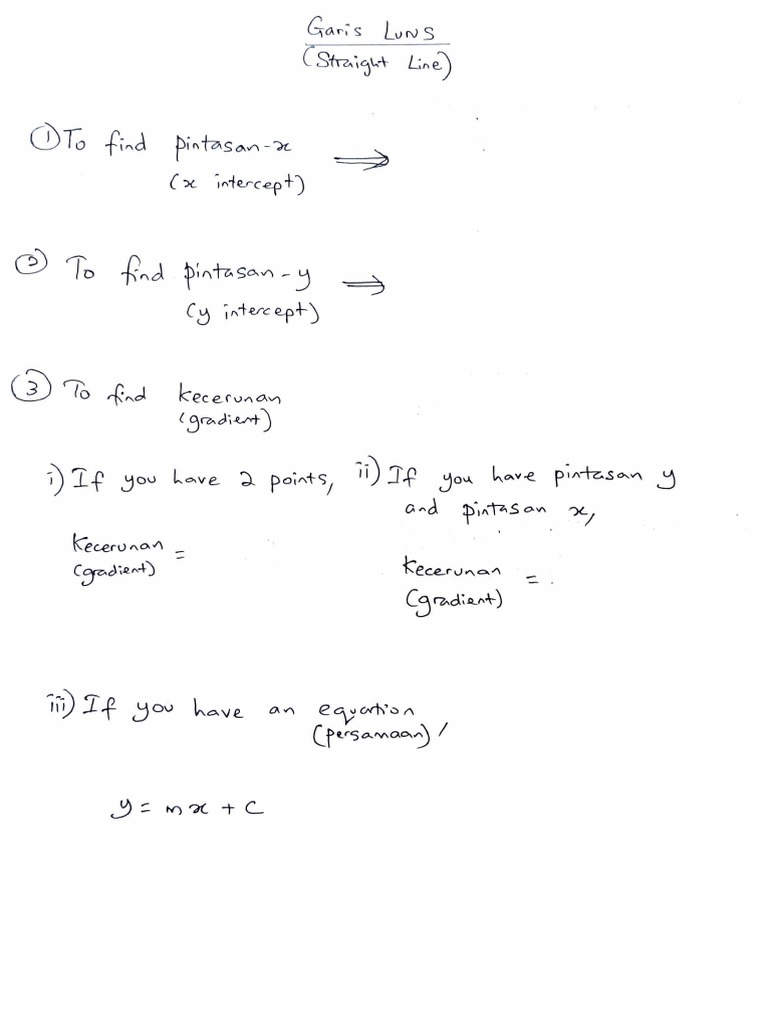 Garis Lurus
(Straight Line)
① To find pintasan-x ⟹
(x intercept)
② To find pintasan-y ⟹
(y intercept)
③ To find kecerunan
(gradient)
i) If you have 2 points,
Kecerunan =
(gradient)
ii) If you have pintasan y
and pintasan x,
Kecerunan = .
(gradient)
iii) If you have an equation
(persamaan),
y = mx + c